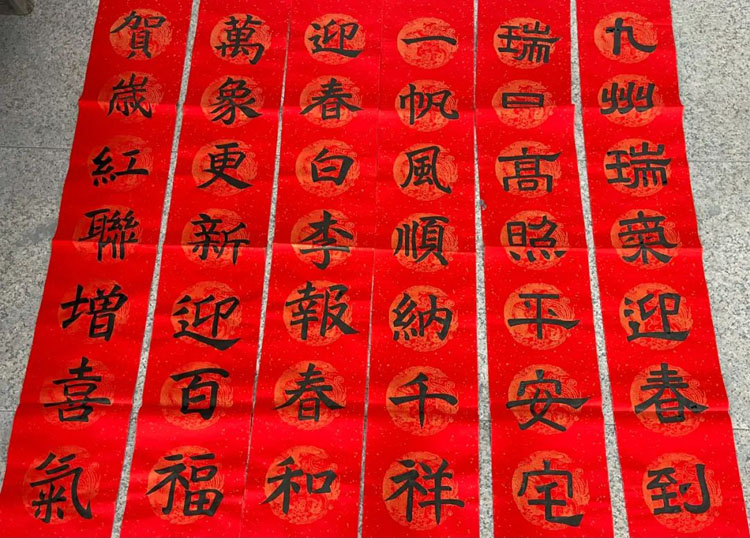 九州瑞氣迎春到
瑞日高照平安宅
一帆風順納千祥
迎春白李報春和
萬象更新迎百福
賀歲紅聯增喜氣